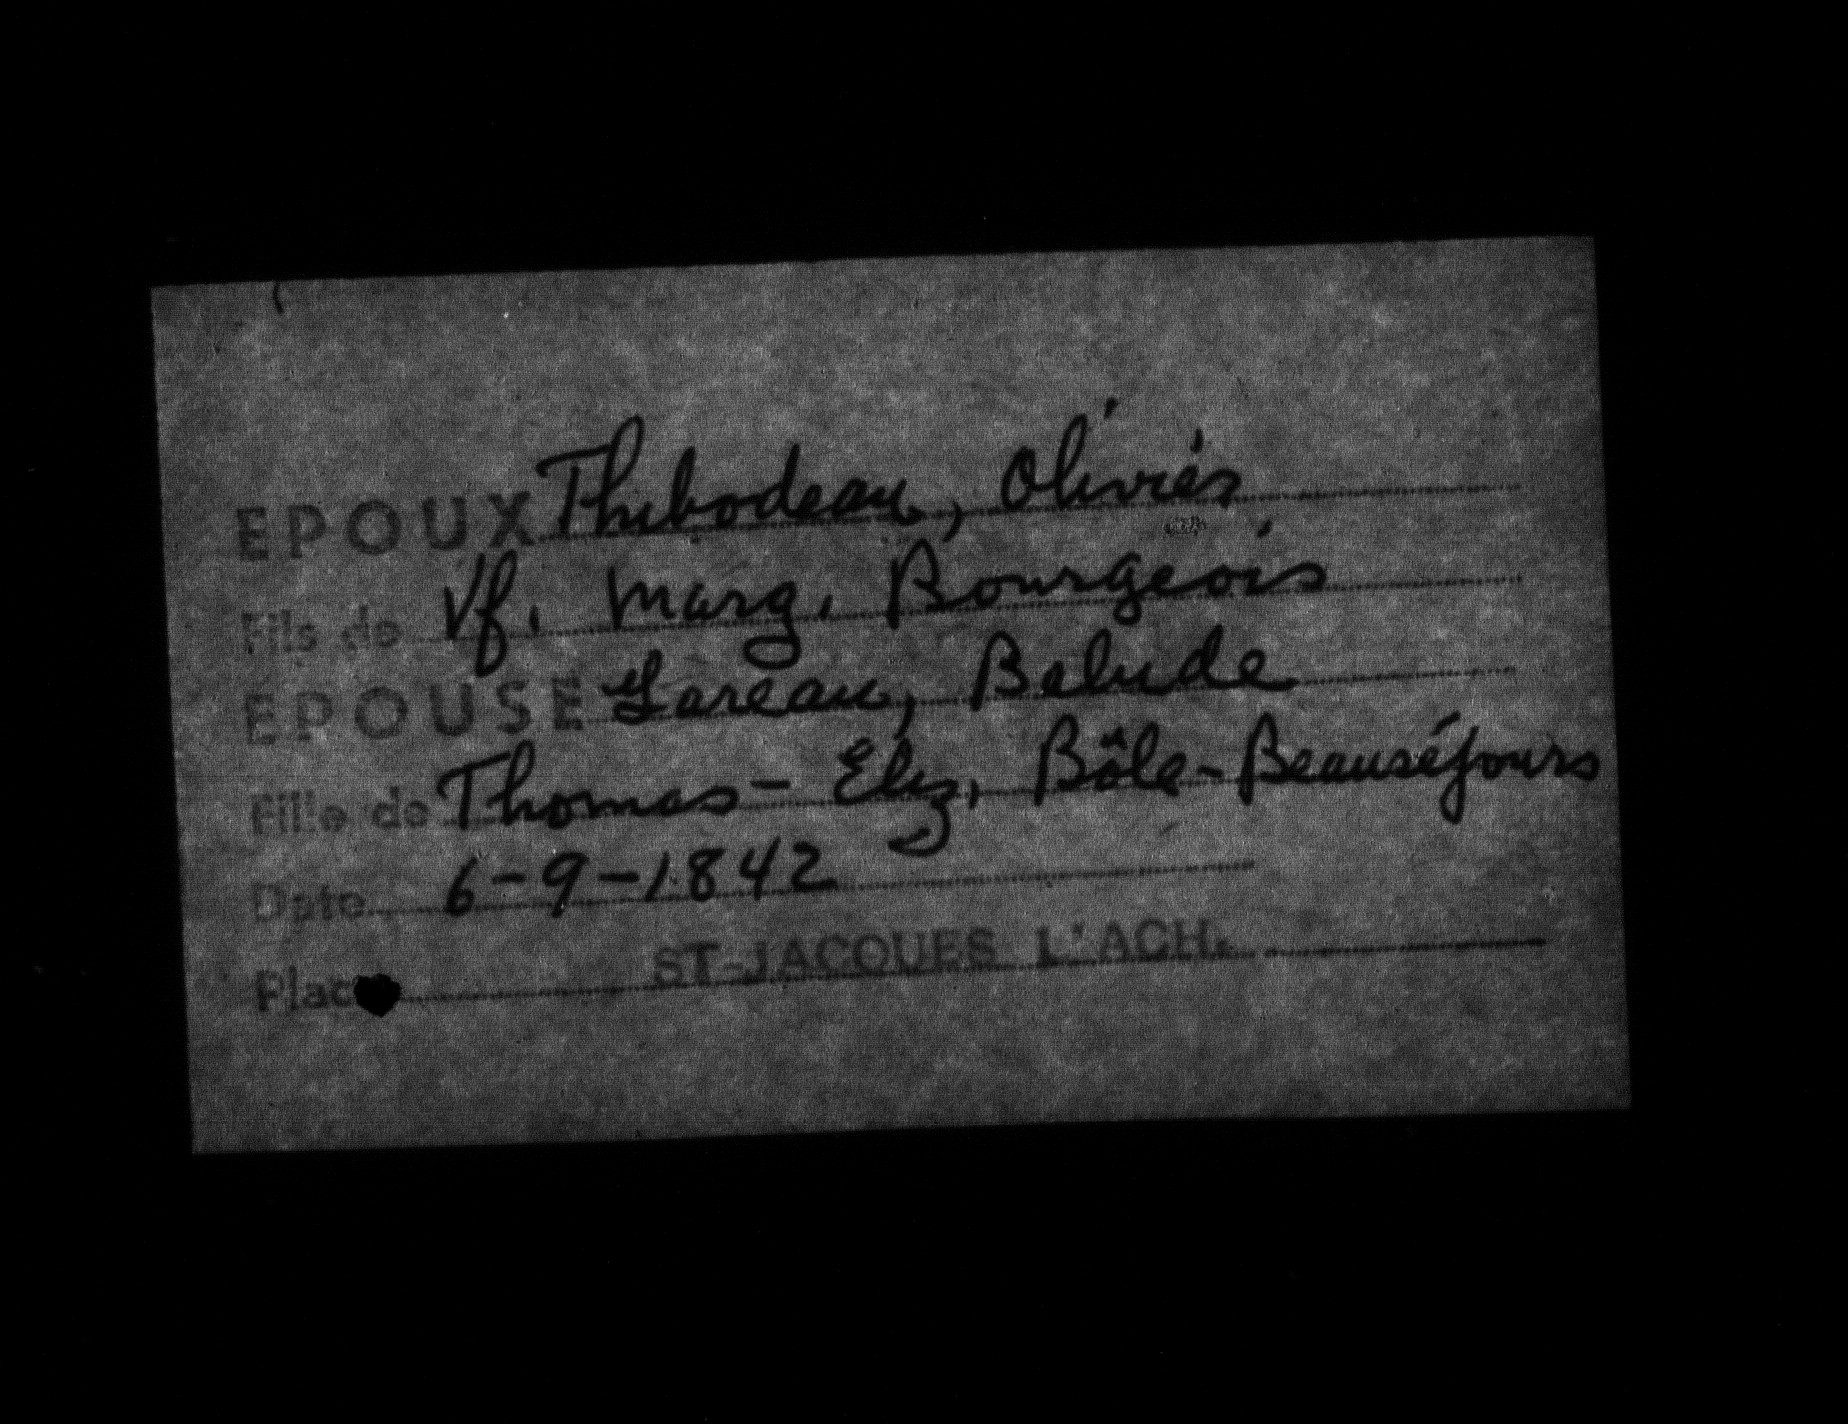 EPOUX Thibodeau, Olivier
Fils de Vf. Marg. Bourgeois
EPOUSE Gareau, Balude
Fille de Thomas - Eliz. Bôle-Beauséjours
Date 6-9-1842
Place ST-JACQUES L'ACH.